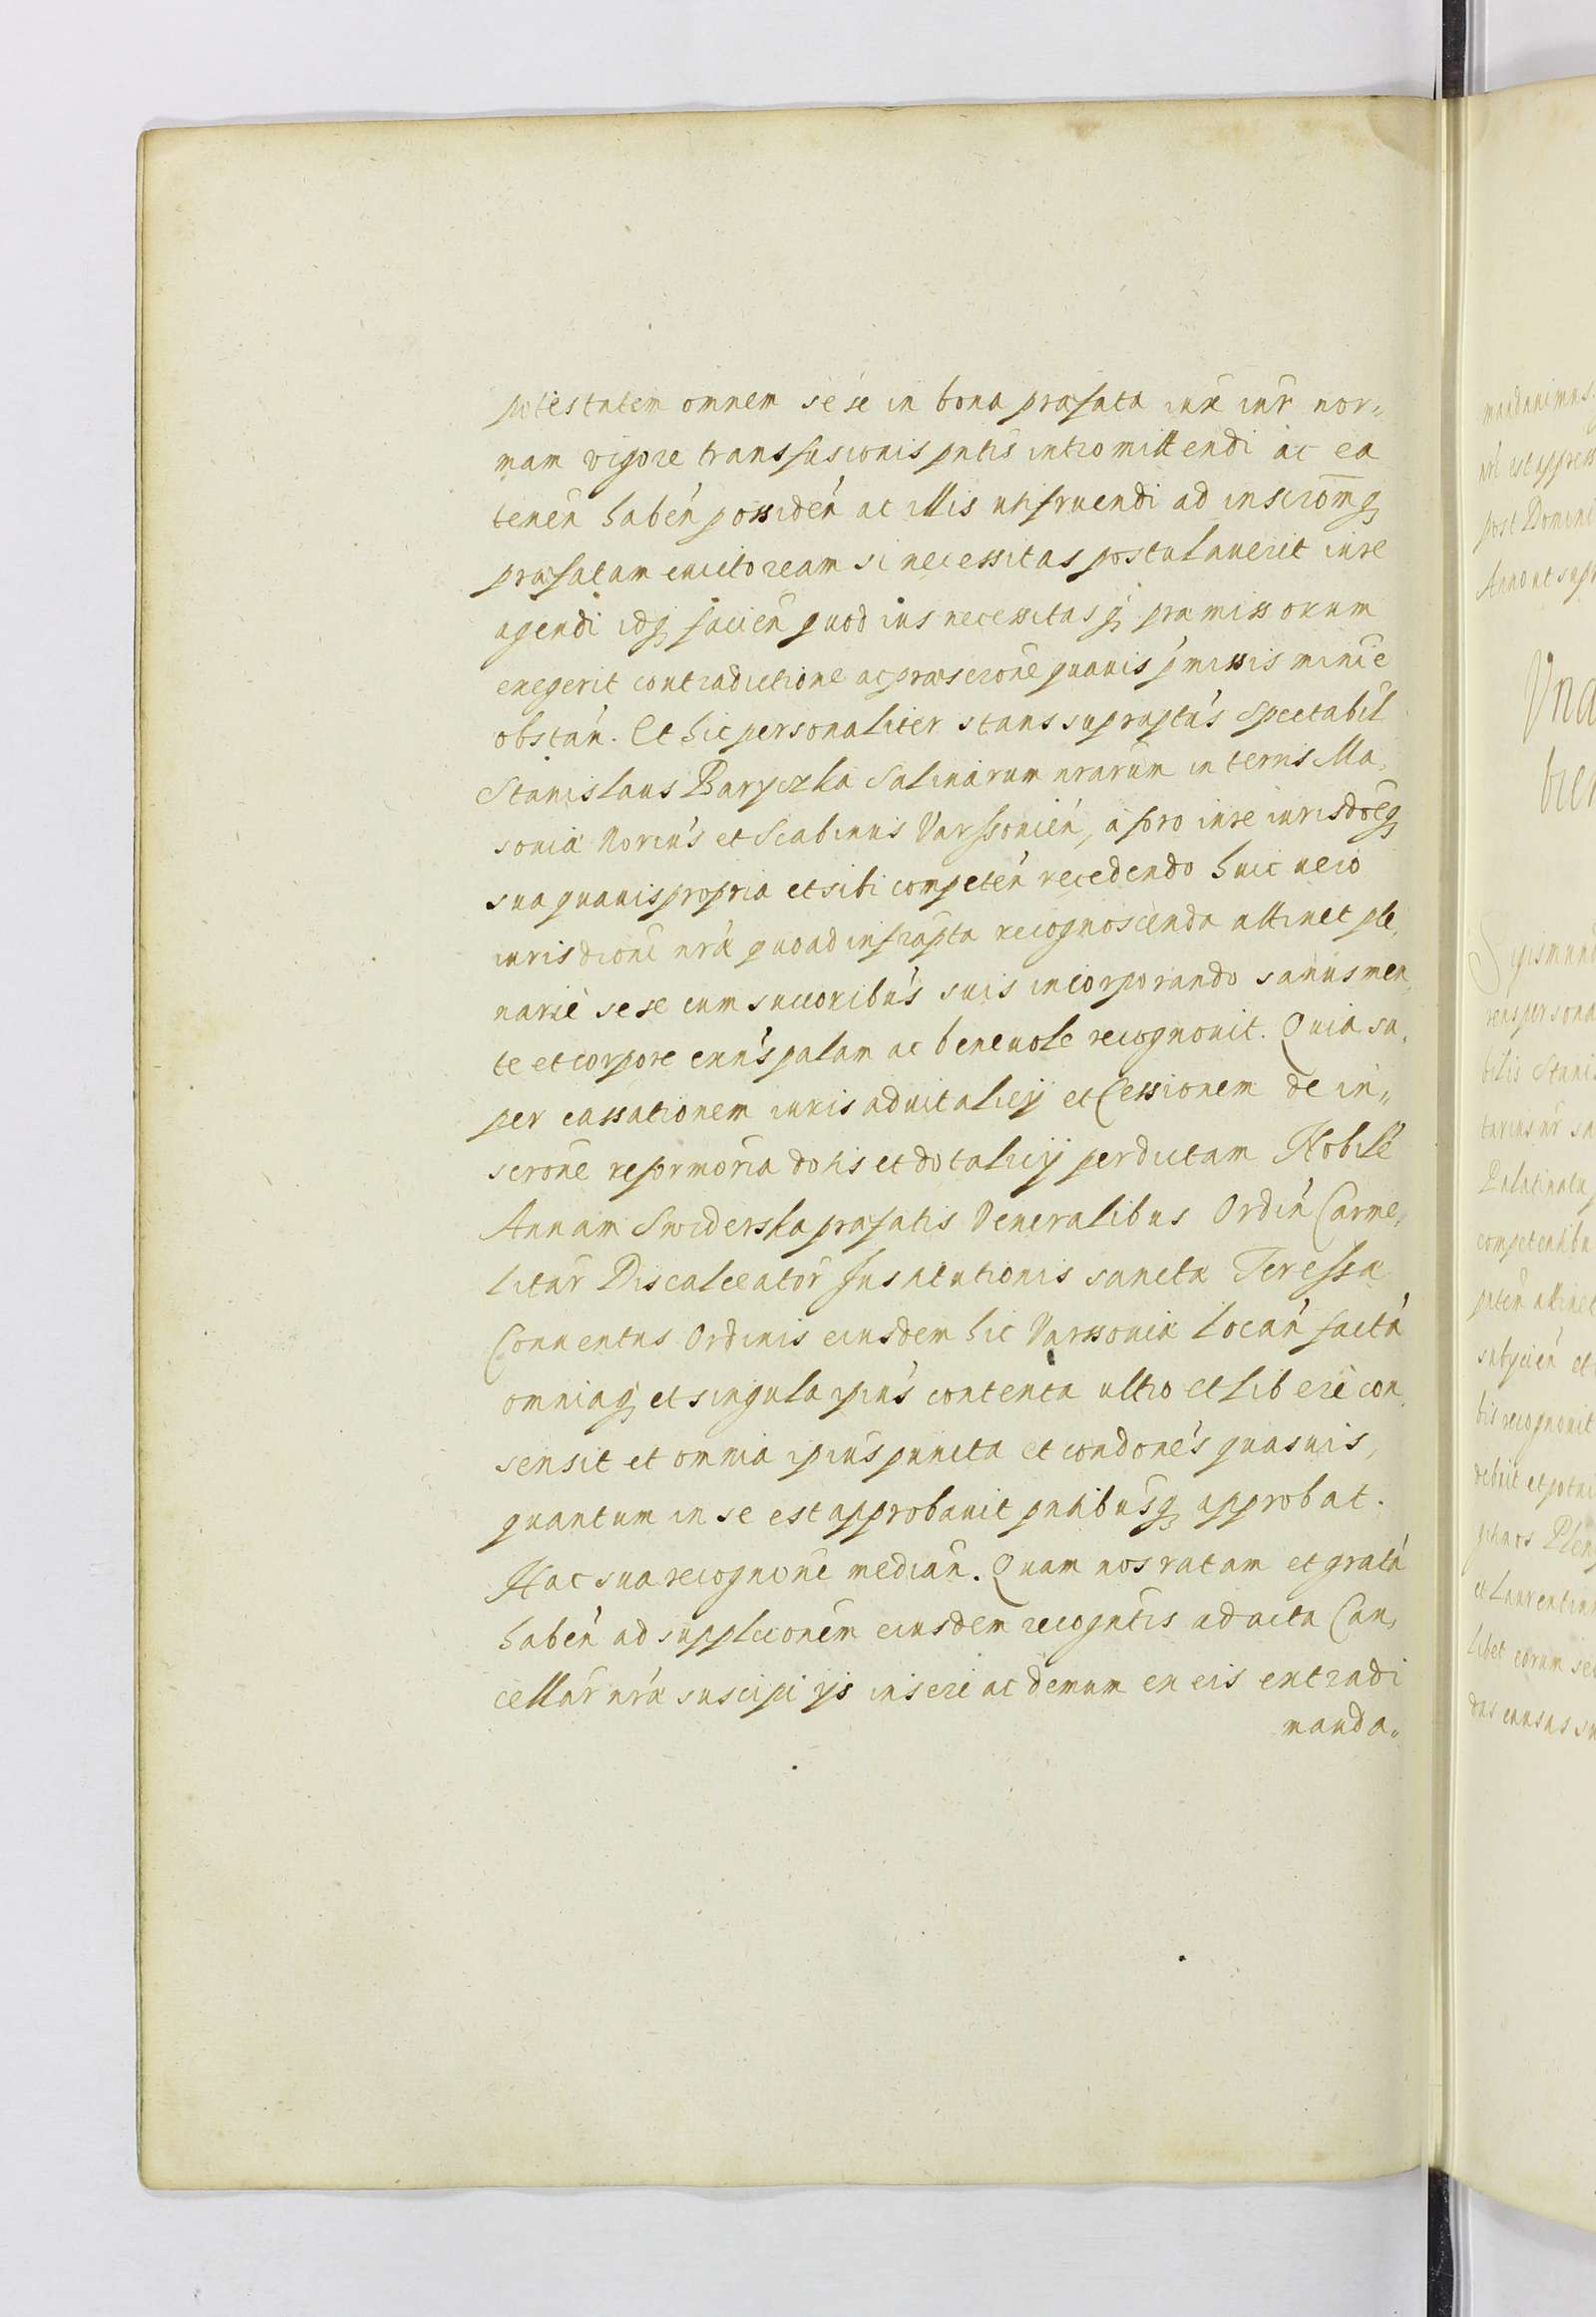 potestatem omnem sese in bona præfata iux̃ iur̃ nor„
mam vigore transfusionis pñtis intromittendi ac ea
teneñ habeñ possideñ ac illis utifruendi ad inscrõmq̃
præfatam evictoream si necessitas postulauerit iure
agendi idq̃ facieñ quod ius necessitasq̃ præmissorum
exegerit contradictione ac præscrõne quauis p̃missis minie
obstañ. Et hic personaliter stans supraptus Spectabil̃
Stanislaus Baryczka Salinarum nrarum in terris Ma„
soviæ Noriũs et Scabinus Varssovieñ, a foro iure iurisdõeq̃
sua quauis propria et sibi competeñ recedendo huic vero
iurisdioni nræ quoad infrapta recognoscenda attinet ple„
narie sese cum succoribus suis incorporando sanus men„
te et corpore exñs palam ac beneuole recognouit. Quia su„
per cassationem iuris aduitalicij et Cessionem de in„
scrone reformoria dotis et dotalicij per dictam Nobilẽ
Annam Swiderska præfatis Veneralibus Ordiñ Carme„
litar̃ Discalceator̃ Institutionis sanctæ Teressæ
Conuentus Ordinis eiusdem hic Varssoviæ locañ factã
omniaq̃ et singula ipius contenta ultro et libere con„
sensit et omnia ipius puncta et condones quasuis,
quantum in se est approbauit pntibusq̃ approbat.
Hac sua recognone mediañ. Quam nos ratam et gratã
habeñ ad supplicionem eiusdem recogntis ad acta Can„
cellar̃ nræ suscipi ijs inseri ac demum ex eis extradi
manda„
mandauimus.
nri est appress
post Domini
Anno ut supr
Vna
bier
Sigismund
rens persona
bilis Stanis
Palatinatu
competentibu
subycieñ et
bis recognouit
debuit et potui
et Laurentium
libet eorum se
das causas su